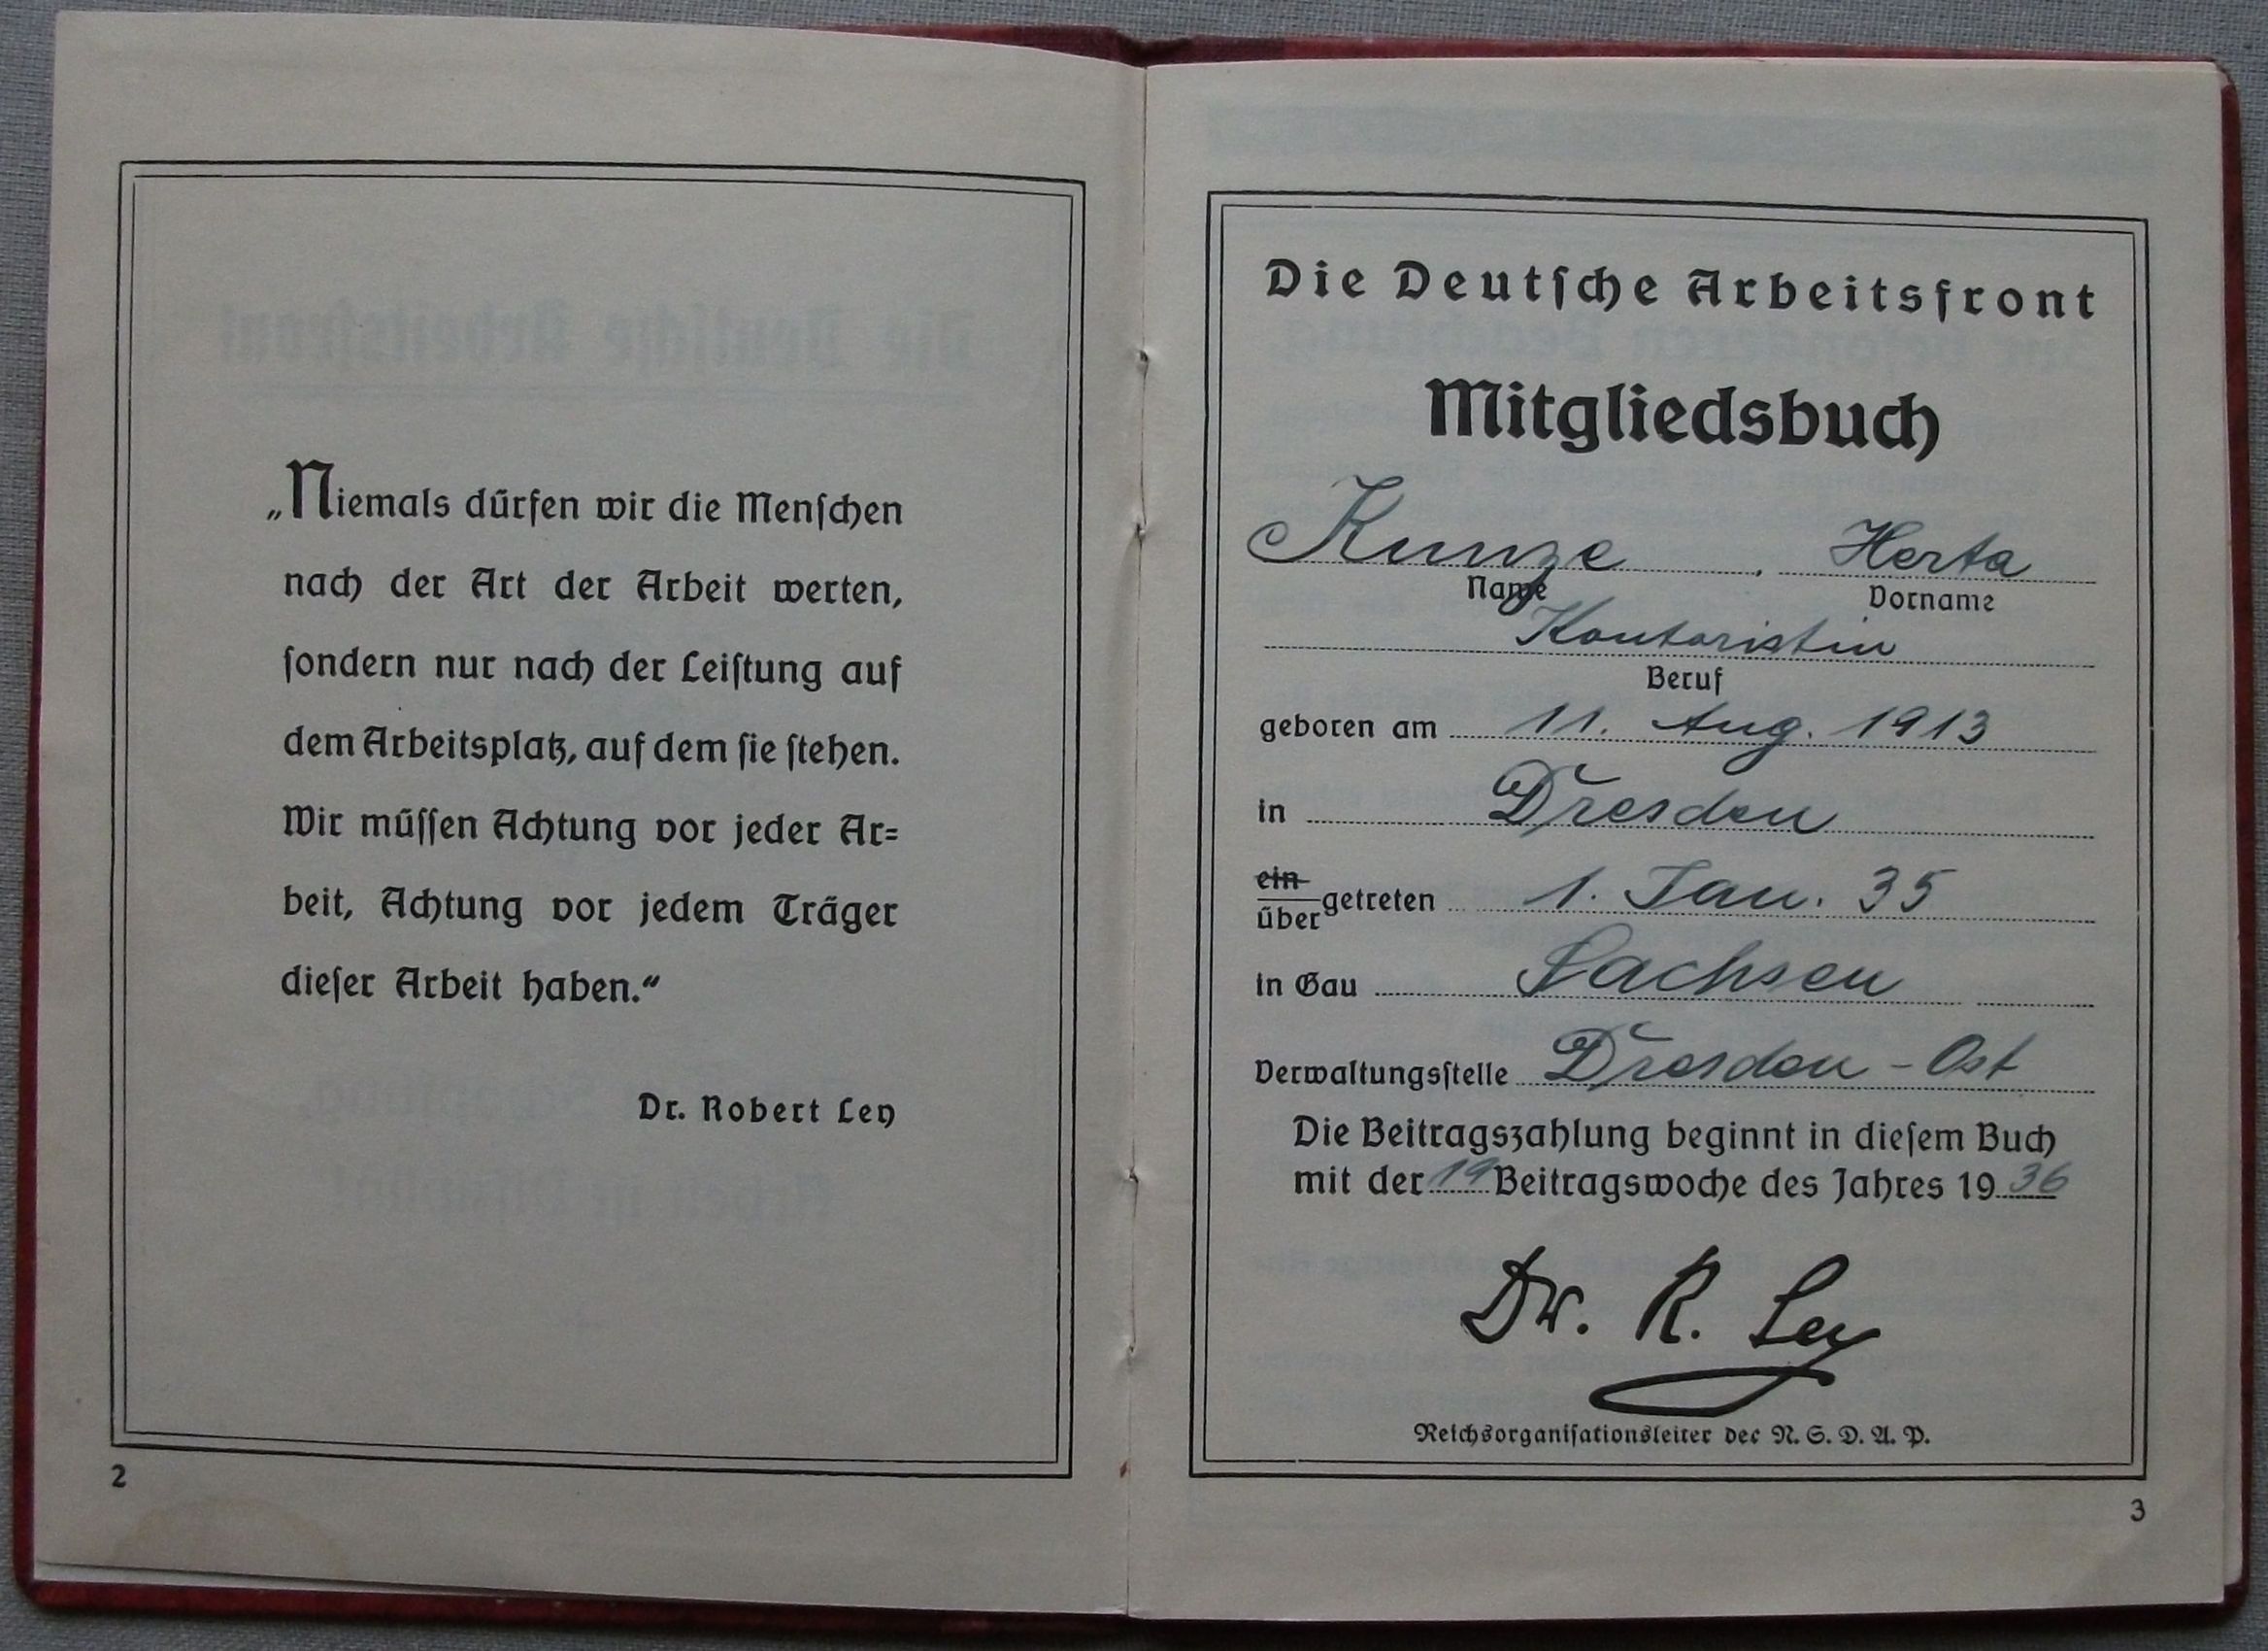 „Niemals dürfen wir die Menſchen
nach der Art der Arbeit werten,
ſondern nur nach der Leiſtung auf
dem Arbeitsplatz, auf dem ſie ſtehen.
Wir müſſen Achtung vor jeder Ar=
beit, Achtung vor jedem Träger
dieſer Arbeit haben.“
Dr. Robert Ley
2
Die Deutſche Arbeitsfront
Mitgliedsbuch
Kunze, Herta
Name Vorname
Kontoristin
Beruf
geboren am 11. Aug. 1913
in Dresden
ein
über getreten 1. Jan. 35
in Gau Sachsen
Verwaltungsſtelle Dresden - Ost
Die Beitragszahlung beginnt in dieſem Buch
mit der 19 Beitragswoche des Jahres 1936
Dr. R. Ley
Reichsorganiſationsleiter der N. S. D. A. P.
3